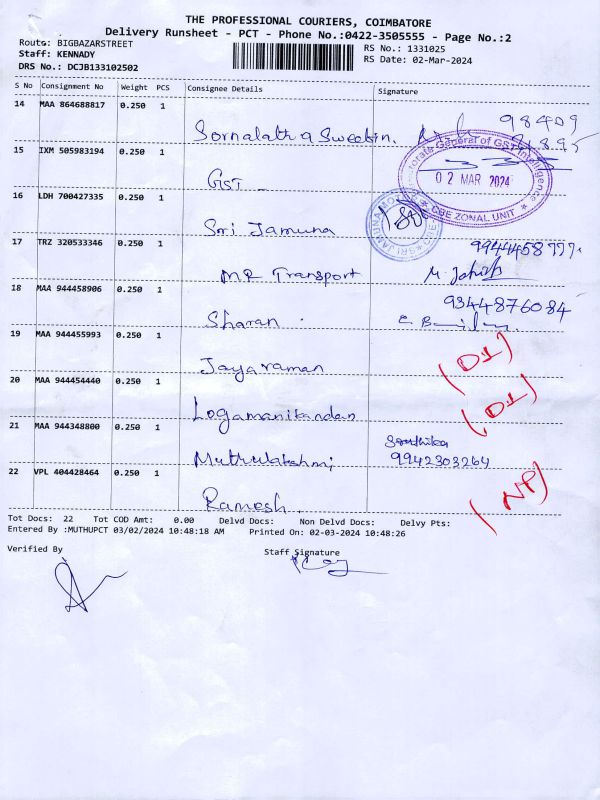 THE PROFESSIONAL COURIERS, COIMBATORE
Delivery Runsheet - PCT - Phone No.:0422-3505555 - Page No.:2
Route: BIGBAZARSTREET
RS No.: 1331025
Staff: KENNADY
RS Date: 02-Mar-2024
DRS No.: DCJB133102502
S No Consignment No Weight PCS Consignee Details Signature
14 MAA 864688817 0.250 1
98409
Sornalatha
15 IXM 505983194 0.250 1
General of GST Intelligence
02 MAR 2024
CBE ZONAL UNIT
GST
16 LDH 700427335 0.250 1
Sri Jamuna
17 TRZ 320533346 0.250 1
MR Transport
18 MAA 944458906 0.250 1
9344876084
Sharan
19 MAA 944455993 0.250 1
Jayaraman
(D1)
20 MAA 944454440 0.250 1
Logamanikandan
(D1)
21 MAA 944348800 0.250 1
Muthulakshmi
9942303264
22 VPL 404428464 0.250 1
Ramesh
(NP)
Tot Docs: 22 Tot COD Amt: 0.00 Delvd Docs: Non Delvd Docs: Delvy Pts:
Entered By :MUTHUPCT 03/02/2024 10:48:18 AM Printed On: 02-03-2024 10:48:26
Verified By
Staff Signature